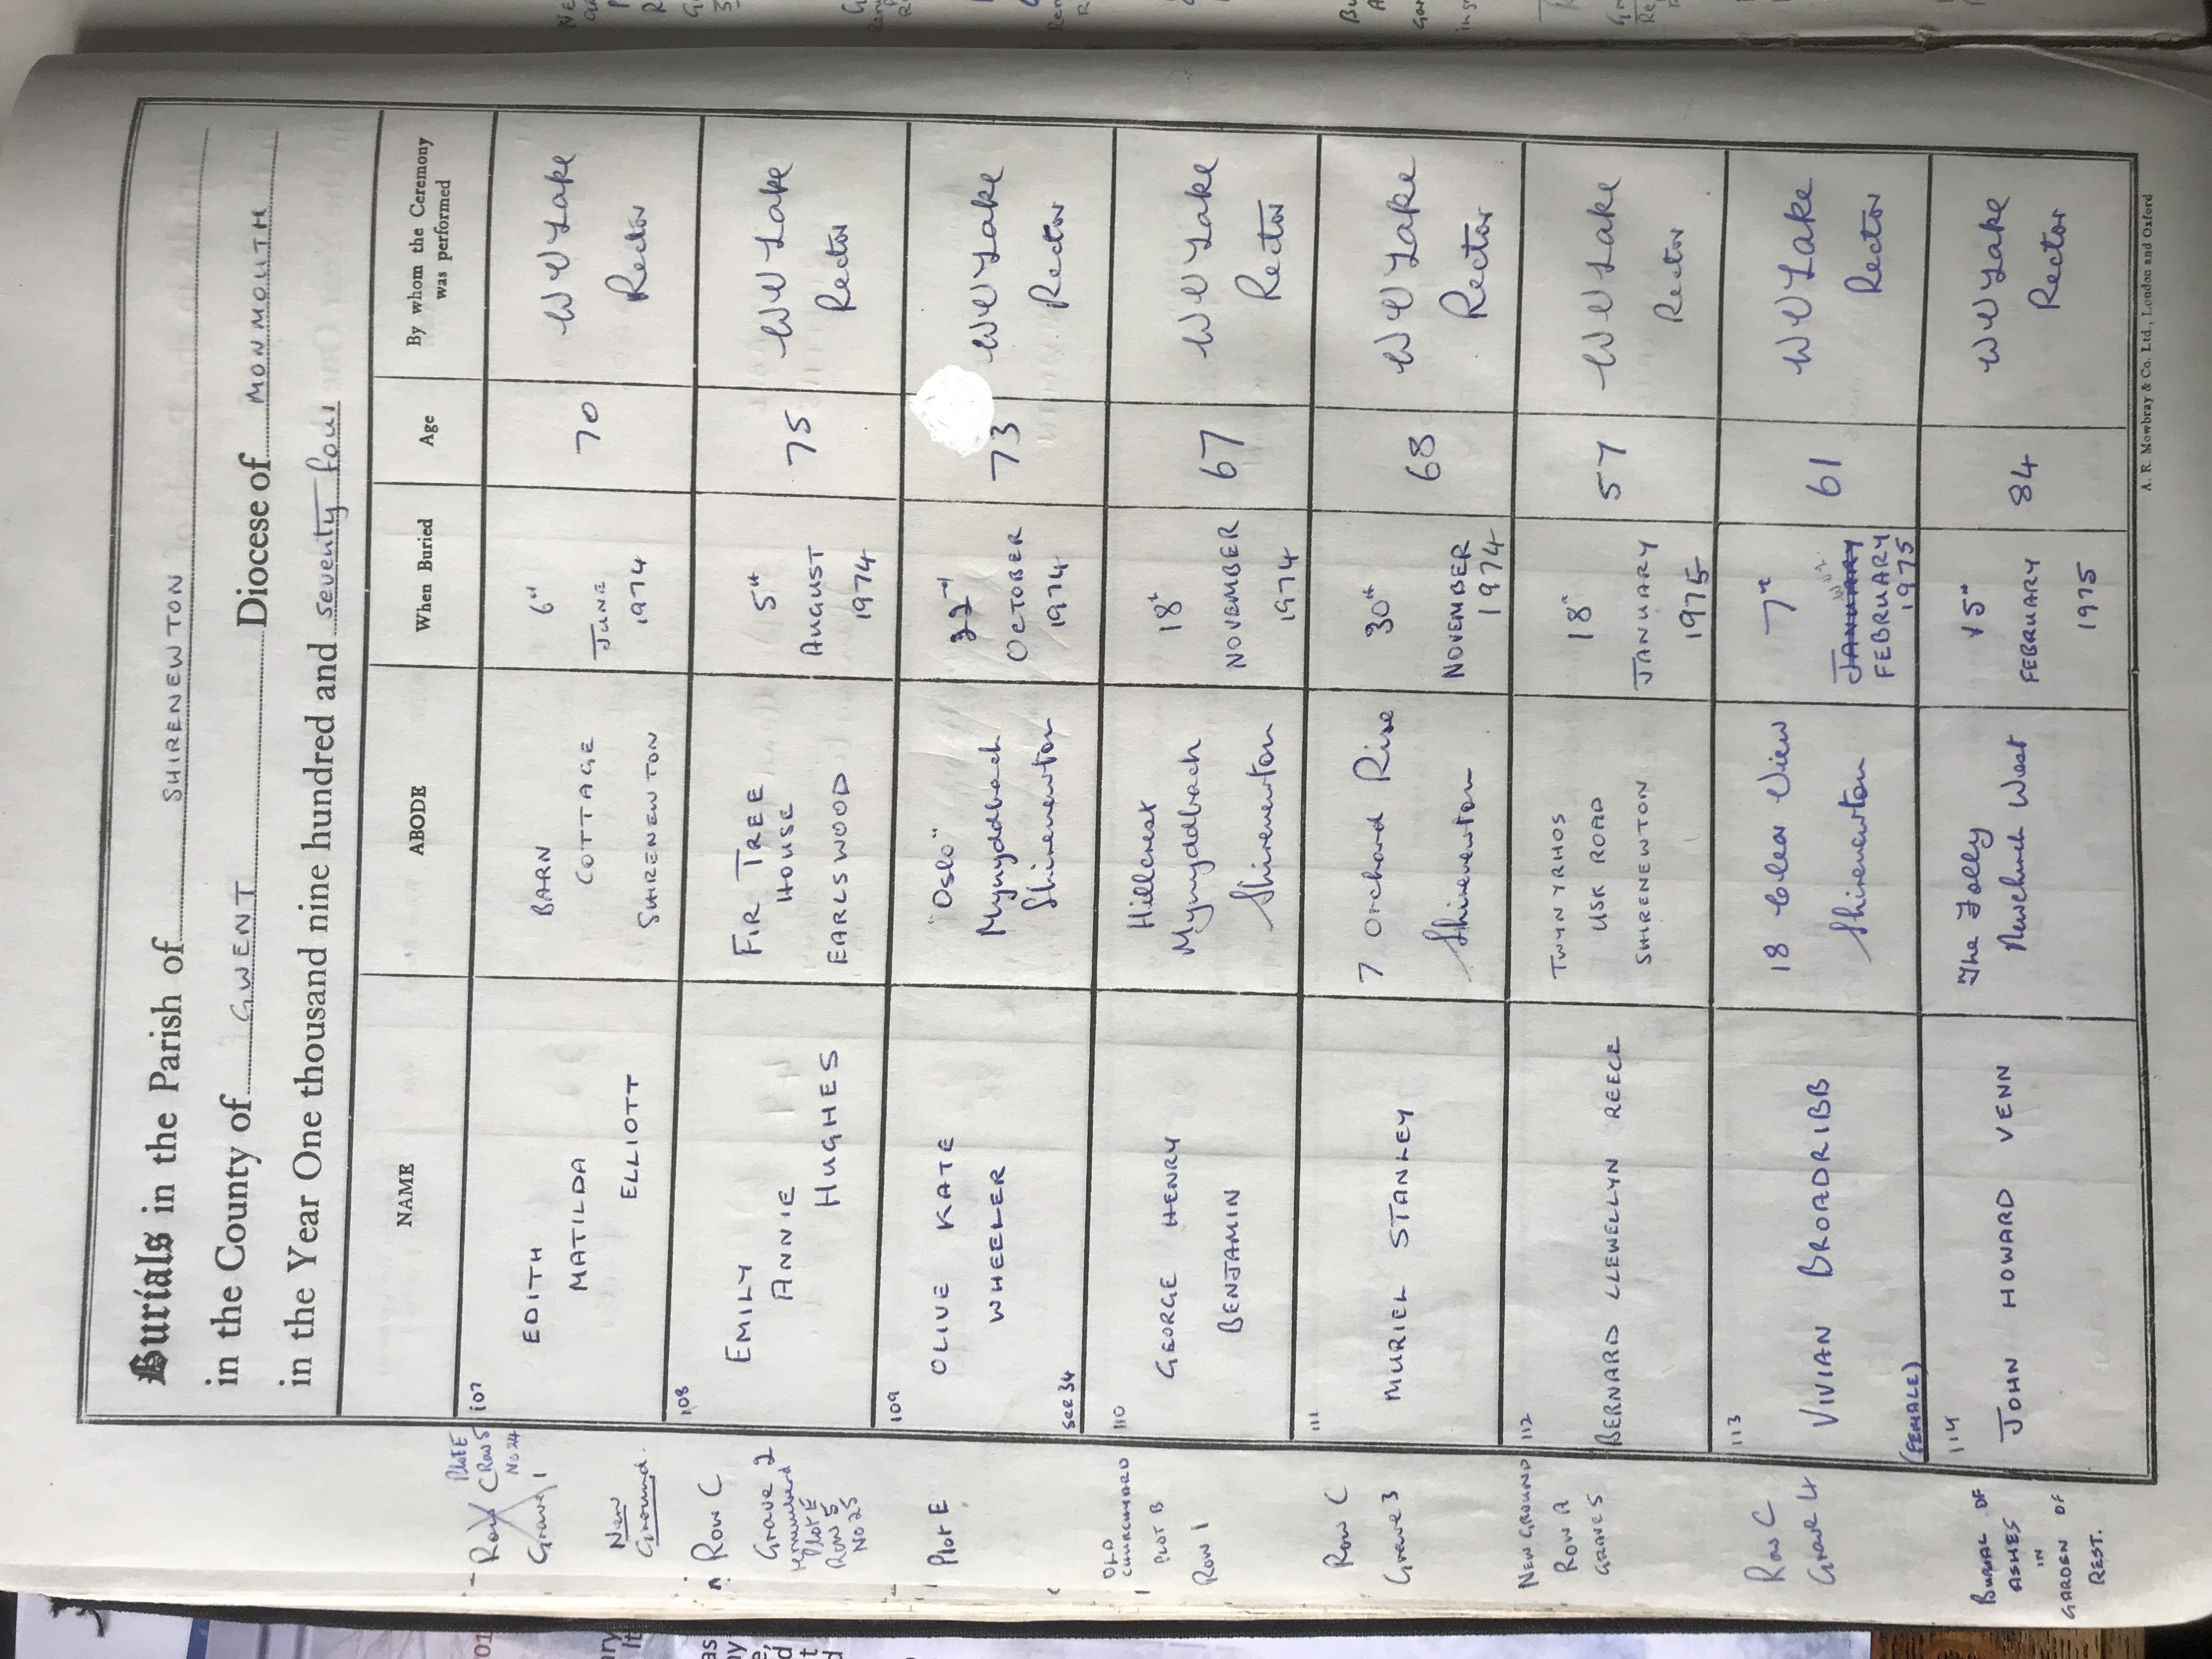 Burials in the Parish of SHIRENEWTON
in the County of GWENT Diocese of MONMOUTH
in the Year One thousand nine hundred and seventy four
NAME ABODE When Buried Age By whom the Ceremony was performed
PLOT E
Row C Row 5
No 24
Grave 1
New
Ground.
107
EDITH
MATILDA
ELLIOTT
BARN
COTTAGE
SHIRENEWTON
6th
JUNE
1974
70
W W Lake
Rector
Row C
Grave 2
renumbered
Plot E
Row 5
No 25
108
EMILY
ANNIE
HUGHES
FIR TREE
HOUSE
EARLSWOOD
5th
AUGUST
1974
75
W W Lake
Rector
Plot E
109
OLIVE KATE
WHEELER
see 34
"Oslo"
Mynyddbach
Shirenewton
OCTOBER
1974
73
W W Lake
Rector
OLD
CHURCHYARD
PLOT B
Row 1
110
GEORGE HENRY
BENJAMIN
Hillcrest
Mynyddbach
Shirenewton
18th
NOVEMBER
1974
67
W W Lake
Rector
Row C
Grave 3
111
MURIEL STANLEY
7 Orchard Rise
Shirenewton
30th
NOVEMBER
1974
68
W W Lake
Rector
NEW GROUND
Row A
GRAVE 5
112
BERNARD LLEWELLYN REECE
TWYN YRHOS
USK ROAD
SHIRENEWTON
18th
JANUARY
1975
57
W W Lake
Rector
Row C
Grave 4
113
VIVIAN BROADRIBB
(FEMALE)
18 Clear View
Shirenewton
7th
JANUARY
FEBRUARY
1975
61
W W Lake
Rector
BURIAL OF
ASHES
IN
GARDEN OF
REST.
114
JOHN HOWARD VENN
The Folly
Newchurch West
15th
FEBRUARY
1975
84
W W Lake
Rector
A. R. Mowbray & Co. Ltd., London and Oxford